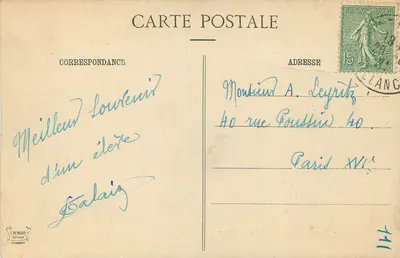 CARTE POSTALE
CORRESPONDANCE
ADRESSE
Meilleur Souvenir
d'un élève
Monsieur A. Leyritz
40 rue Poussin 40.
Paris XVIe
15
111